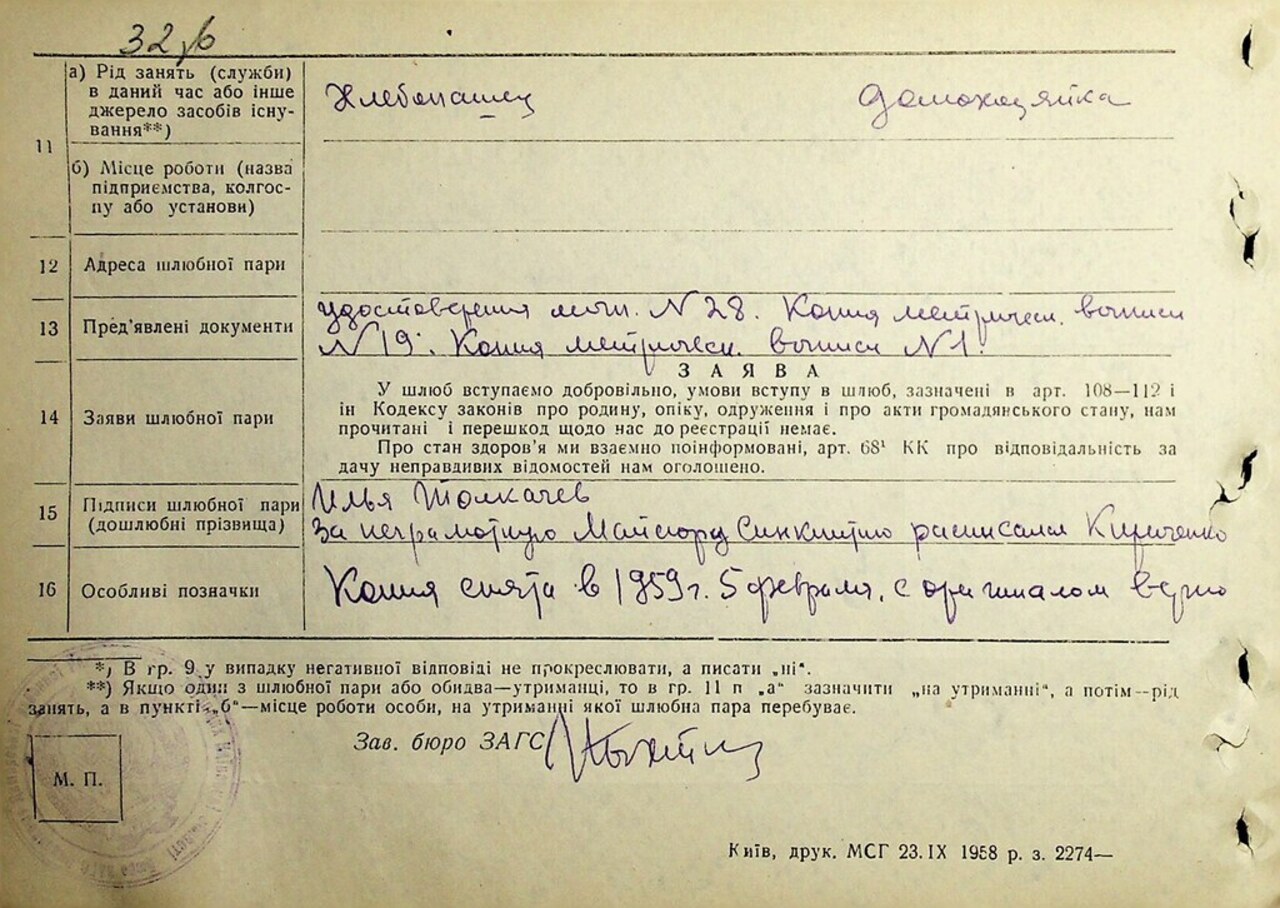 32,б
а) Рід занять (служби)
в даний час або інше
джерело засобів існу-
вання**)
Хлебопашец
домохозяйка
11
б) Місце роботи (назва
підприємства, колгос-
пу або установи)
12
Адреса шлюбної пари
13
Пред'явлені документи
удостоверения личн. N 28. Копия метрическ. выписи
N 19. Копия метрическ. выписи N 1.
ЗАЯВА
14
Заяви шлюбної пари
У шлюб вступаємо добровільно, умови вступу в шлюб, зазначені в арт. 108—112 і
ін Кодексу законів про родину, опіку, одруження і про акти громадянського стану, нам
прочитані і перешкод щодо нас до реєстрації немає.
Про стан здоров'я ми взаємно поінформовані, арт. 68¹ КК про відповідальність за
дачу неправдивих відомостей нам оголошено.
15
Підписи шлюбної пари
(дошлюбні прізвища)
Илья Толкачев
За неграмотную Синкитию расписался Кириченко
16
Особливі позначки
Копия снята в 1959 г. 5 февраля, с оригиналом верно
*) В гр. 9 у випадку негативної відповіді не прокреслювати, а писати „ні".
**) Якщо один з шлюбної пари або обидва—утриманці, то в гр. 11 п „а" зазначити „на утриманні", а потім—рід
занять, а в пункті „б"—місце роботи особи, на утриманні якої шлюбна пара перебуває.
Зав. бюро ЗАГС
М. П.
Київ, друк. МСГ 23.IX 1958 р. з. 2274—